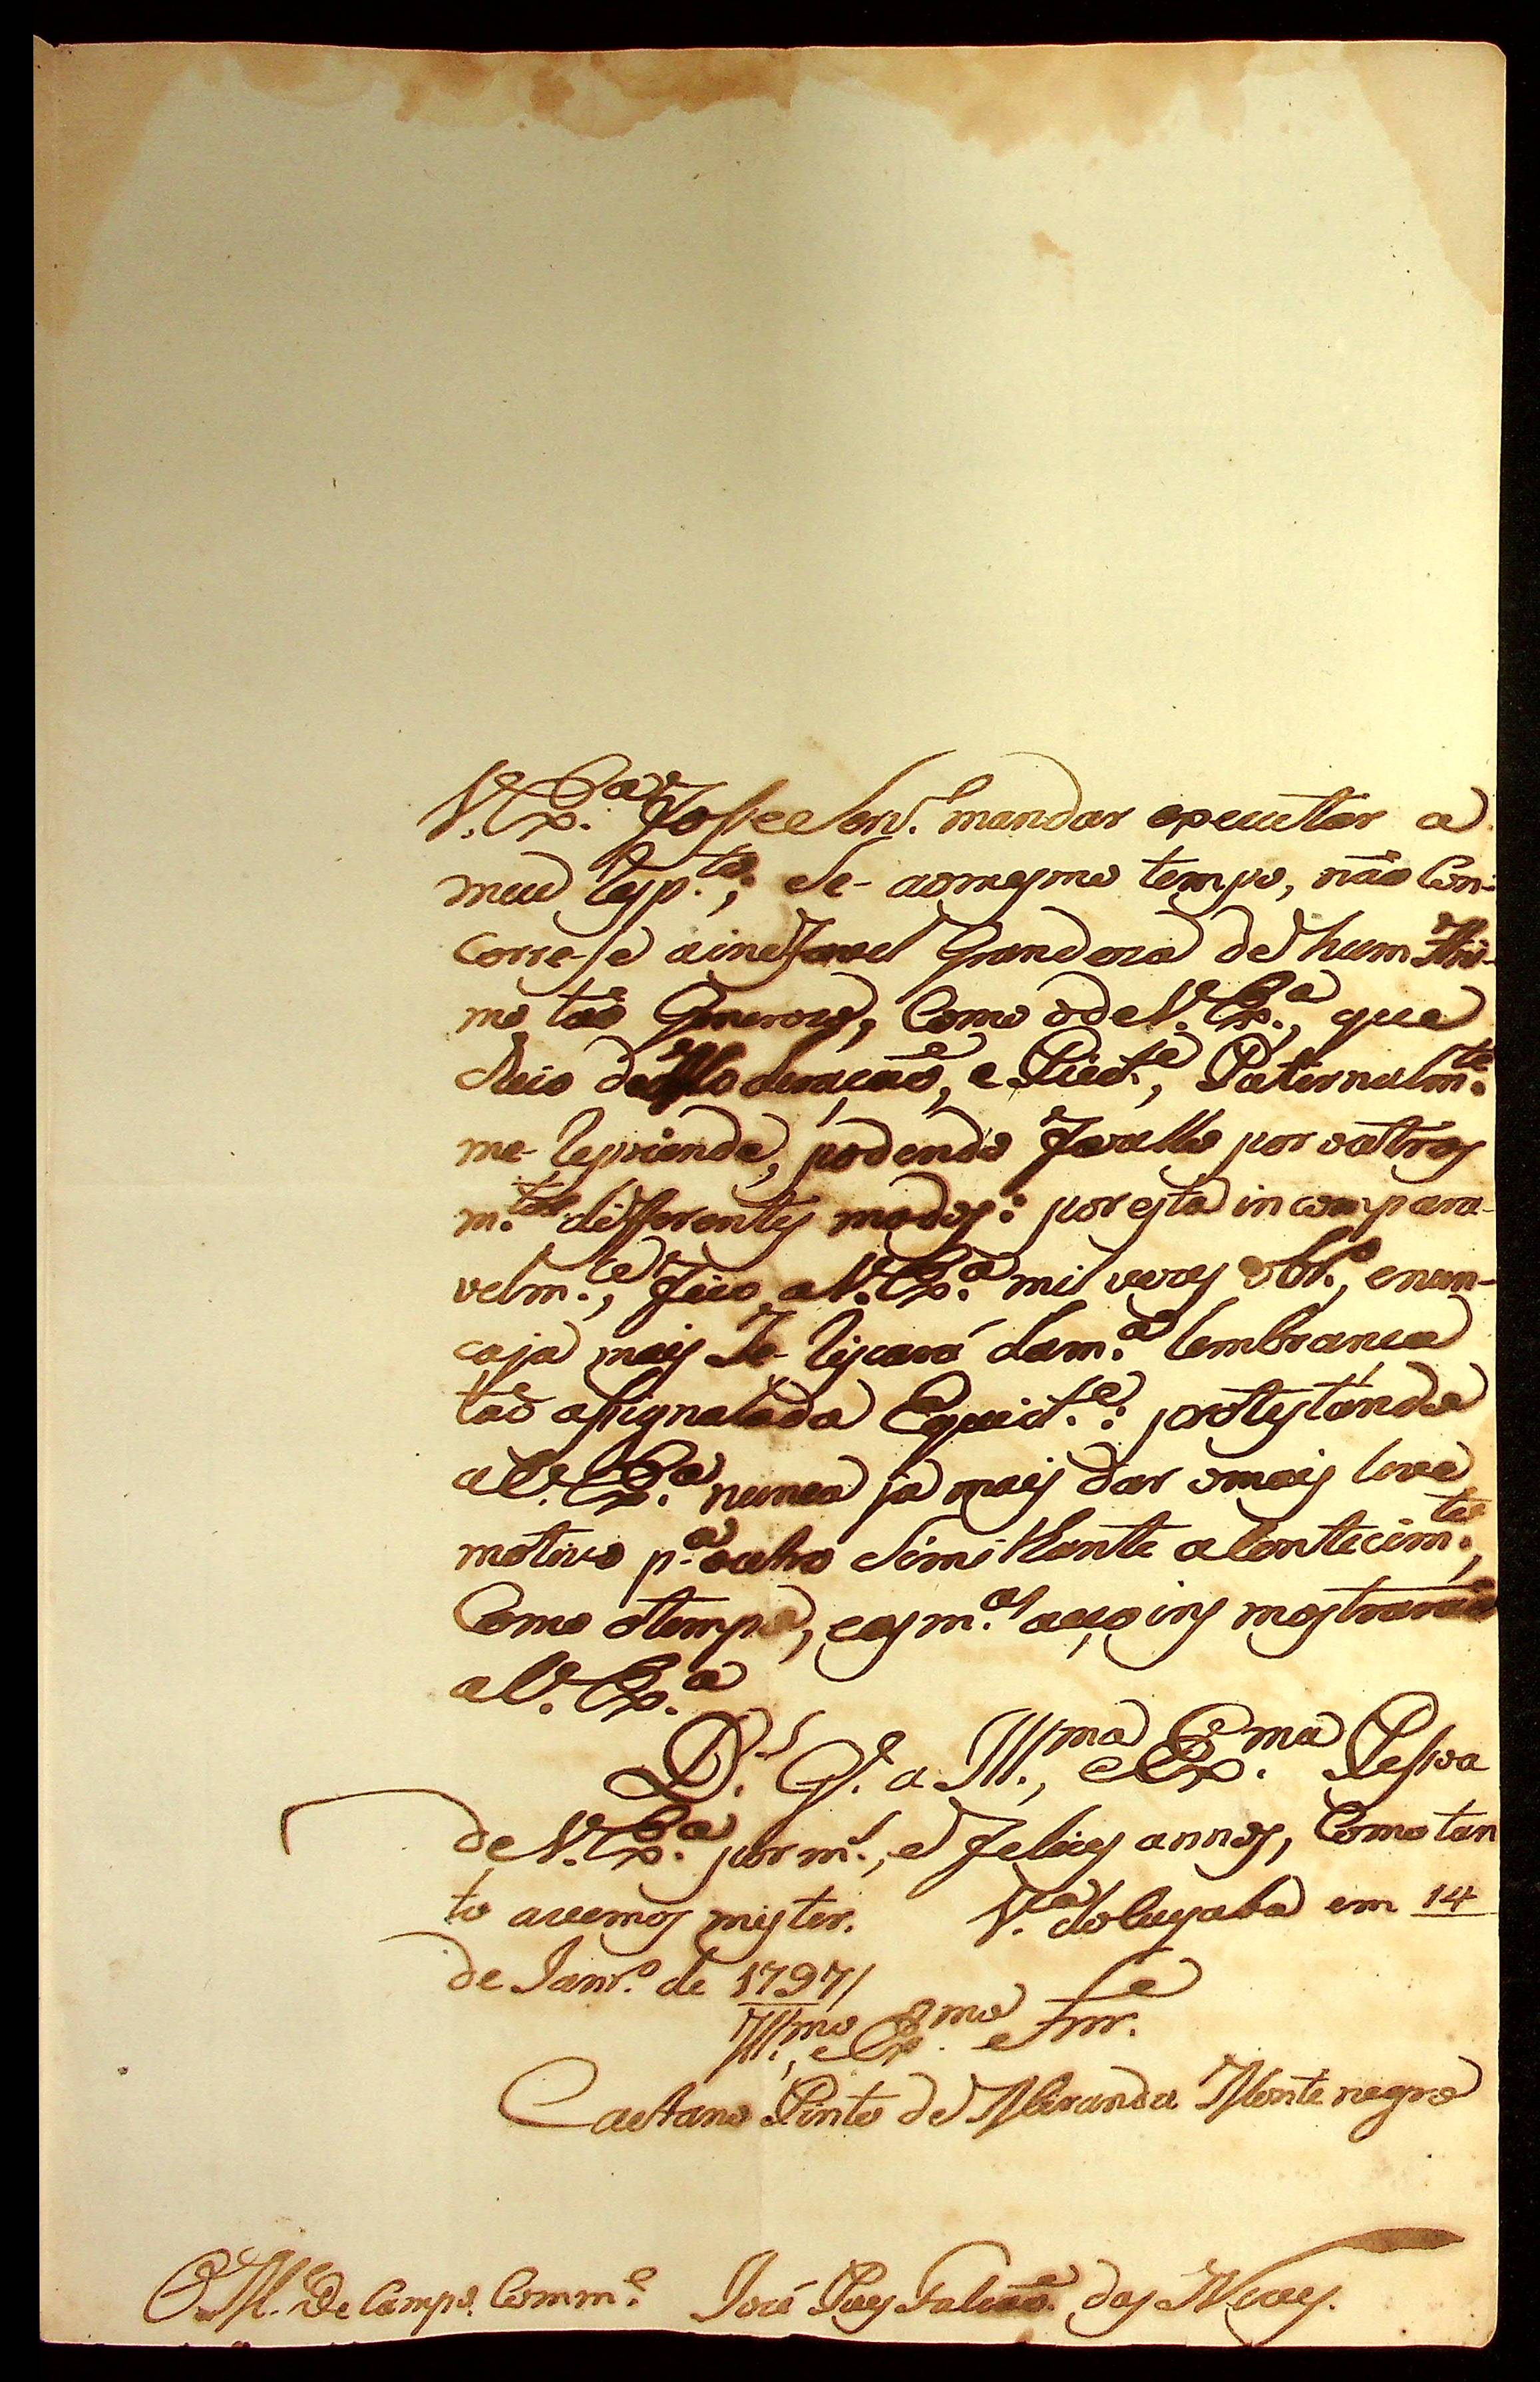 V. Ex.ª fosse serv.º mandar executar a
meu resp.to; se ao mesmo tempo, não con-
corre-se a inefavel Grandeza de hum Ani-
mo tão Generozo, Como o de V. Ex.ª, que
cheio de Moderação, e Pied.e, Paternalm.te
me repriende, podendo fazello por outros
m.tos differentes modos: por esta incompara-
velm.te, fico a V. Ex.ª mil vezes obr.º, enun-
caja mais se riscará dam.ª lembranca
tão assignalada Equid.e: protestando
a V. Ex.ª nunca ja mais dar o mais leve
motivo p.ª outro similhante acontecim.to,
Como o tempo, e as m.as acçoins mostrarão
a V. Ex.ª
D.s G.e a Ill.ma, e Ex.ma Pessoa
de V. Ex.ª por m.s, e felices annos, Como tan
to avemos mister. V.ª do Cuyaba em 14
de Janr.º de 1797/
Ill.mo, e Ex.mo Snr.e
Caetano Pinto de Miranda Montenegro
O M.e De Campo Comm.e José Paes Falcão das Neves.